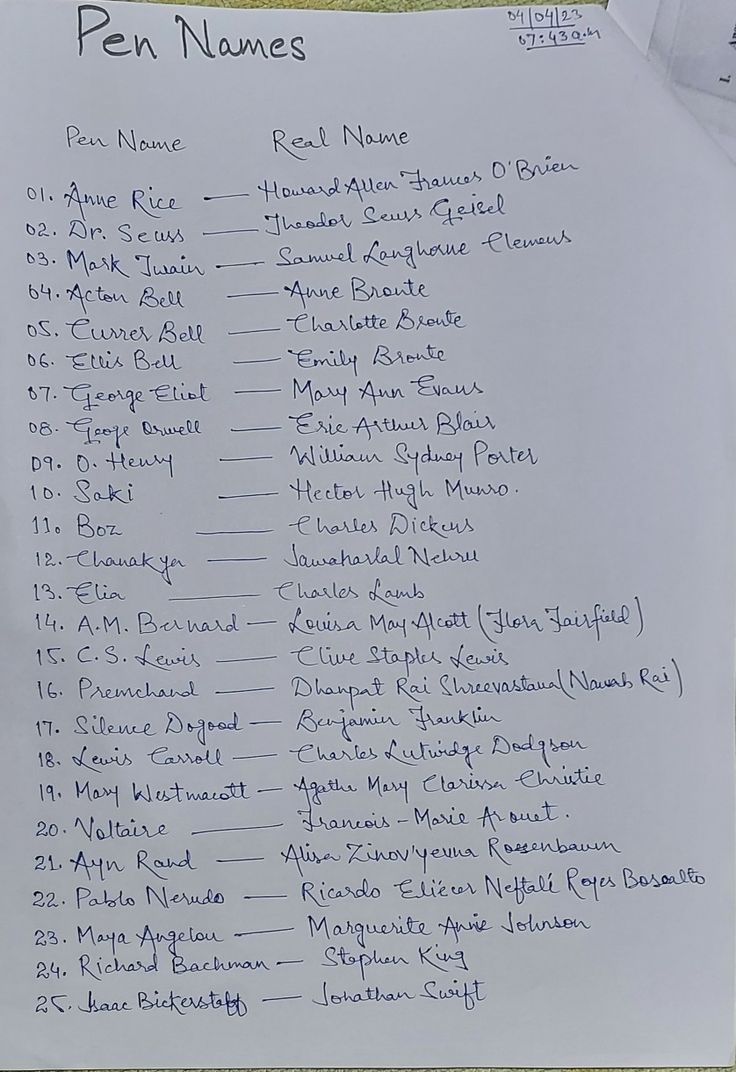 Pen Names
04/04/23
07:43 a.m
Pen Name Real Name
01. Anne Rice — Howard Allen Frances O'Brien
02. Dr. Seuss — Theodor Seuss Geisel
03. Mark Twain — Samuel Langhorne Clemens
04. Acton Bell — Anne Bronte
05. Currer Bell — Charlotte Bronte
06. Ellis Bell — Emily Bronte
07. George Eliot — Mary Ann Evans
08. Geoge Orwell — Eric Arthur Blair
09. O. Henry — William Sydney Porter
10. Saki — Hector Hugh Munro.
11. Boz — Charles Dickens
12. Chanakya — Jawaharlal Nehru
13. Elia — Charles Lamb
14. A.M. Bernard — Louisa May Alcott (Flora Fairfield)
15. C.S. Lewis — Clive Staples Lewis
16. Premchand — Dhanpat Rai Shreevastava (Nawab Rai)
17. Silence Dogood — Benjamin Franklin
18. Lewis Carroll — Charles Lutwidge Dodgson
19. Mary Westmacott — Agatha Mary Clarissa Christie
20. Voltaire — Francois-Marie Arouet.
21. Ayn Rand — Alisa Zinov'yevna Rosenbaum
22. Pablo Nerudo — Ricardo Eliécer Neftalí Reyes Bosoalto
23. Maya Angelou — Marguerite Annie Johnson
24. Richard Bachman — Stephen King
25. Isaac Bickerstaff — Jonathan Swift